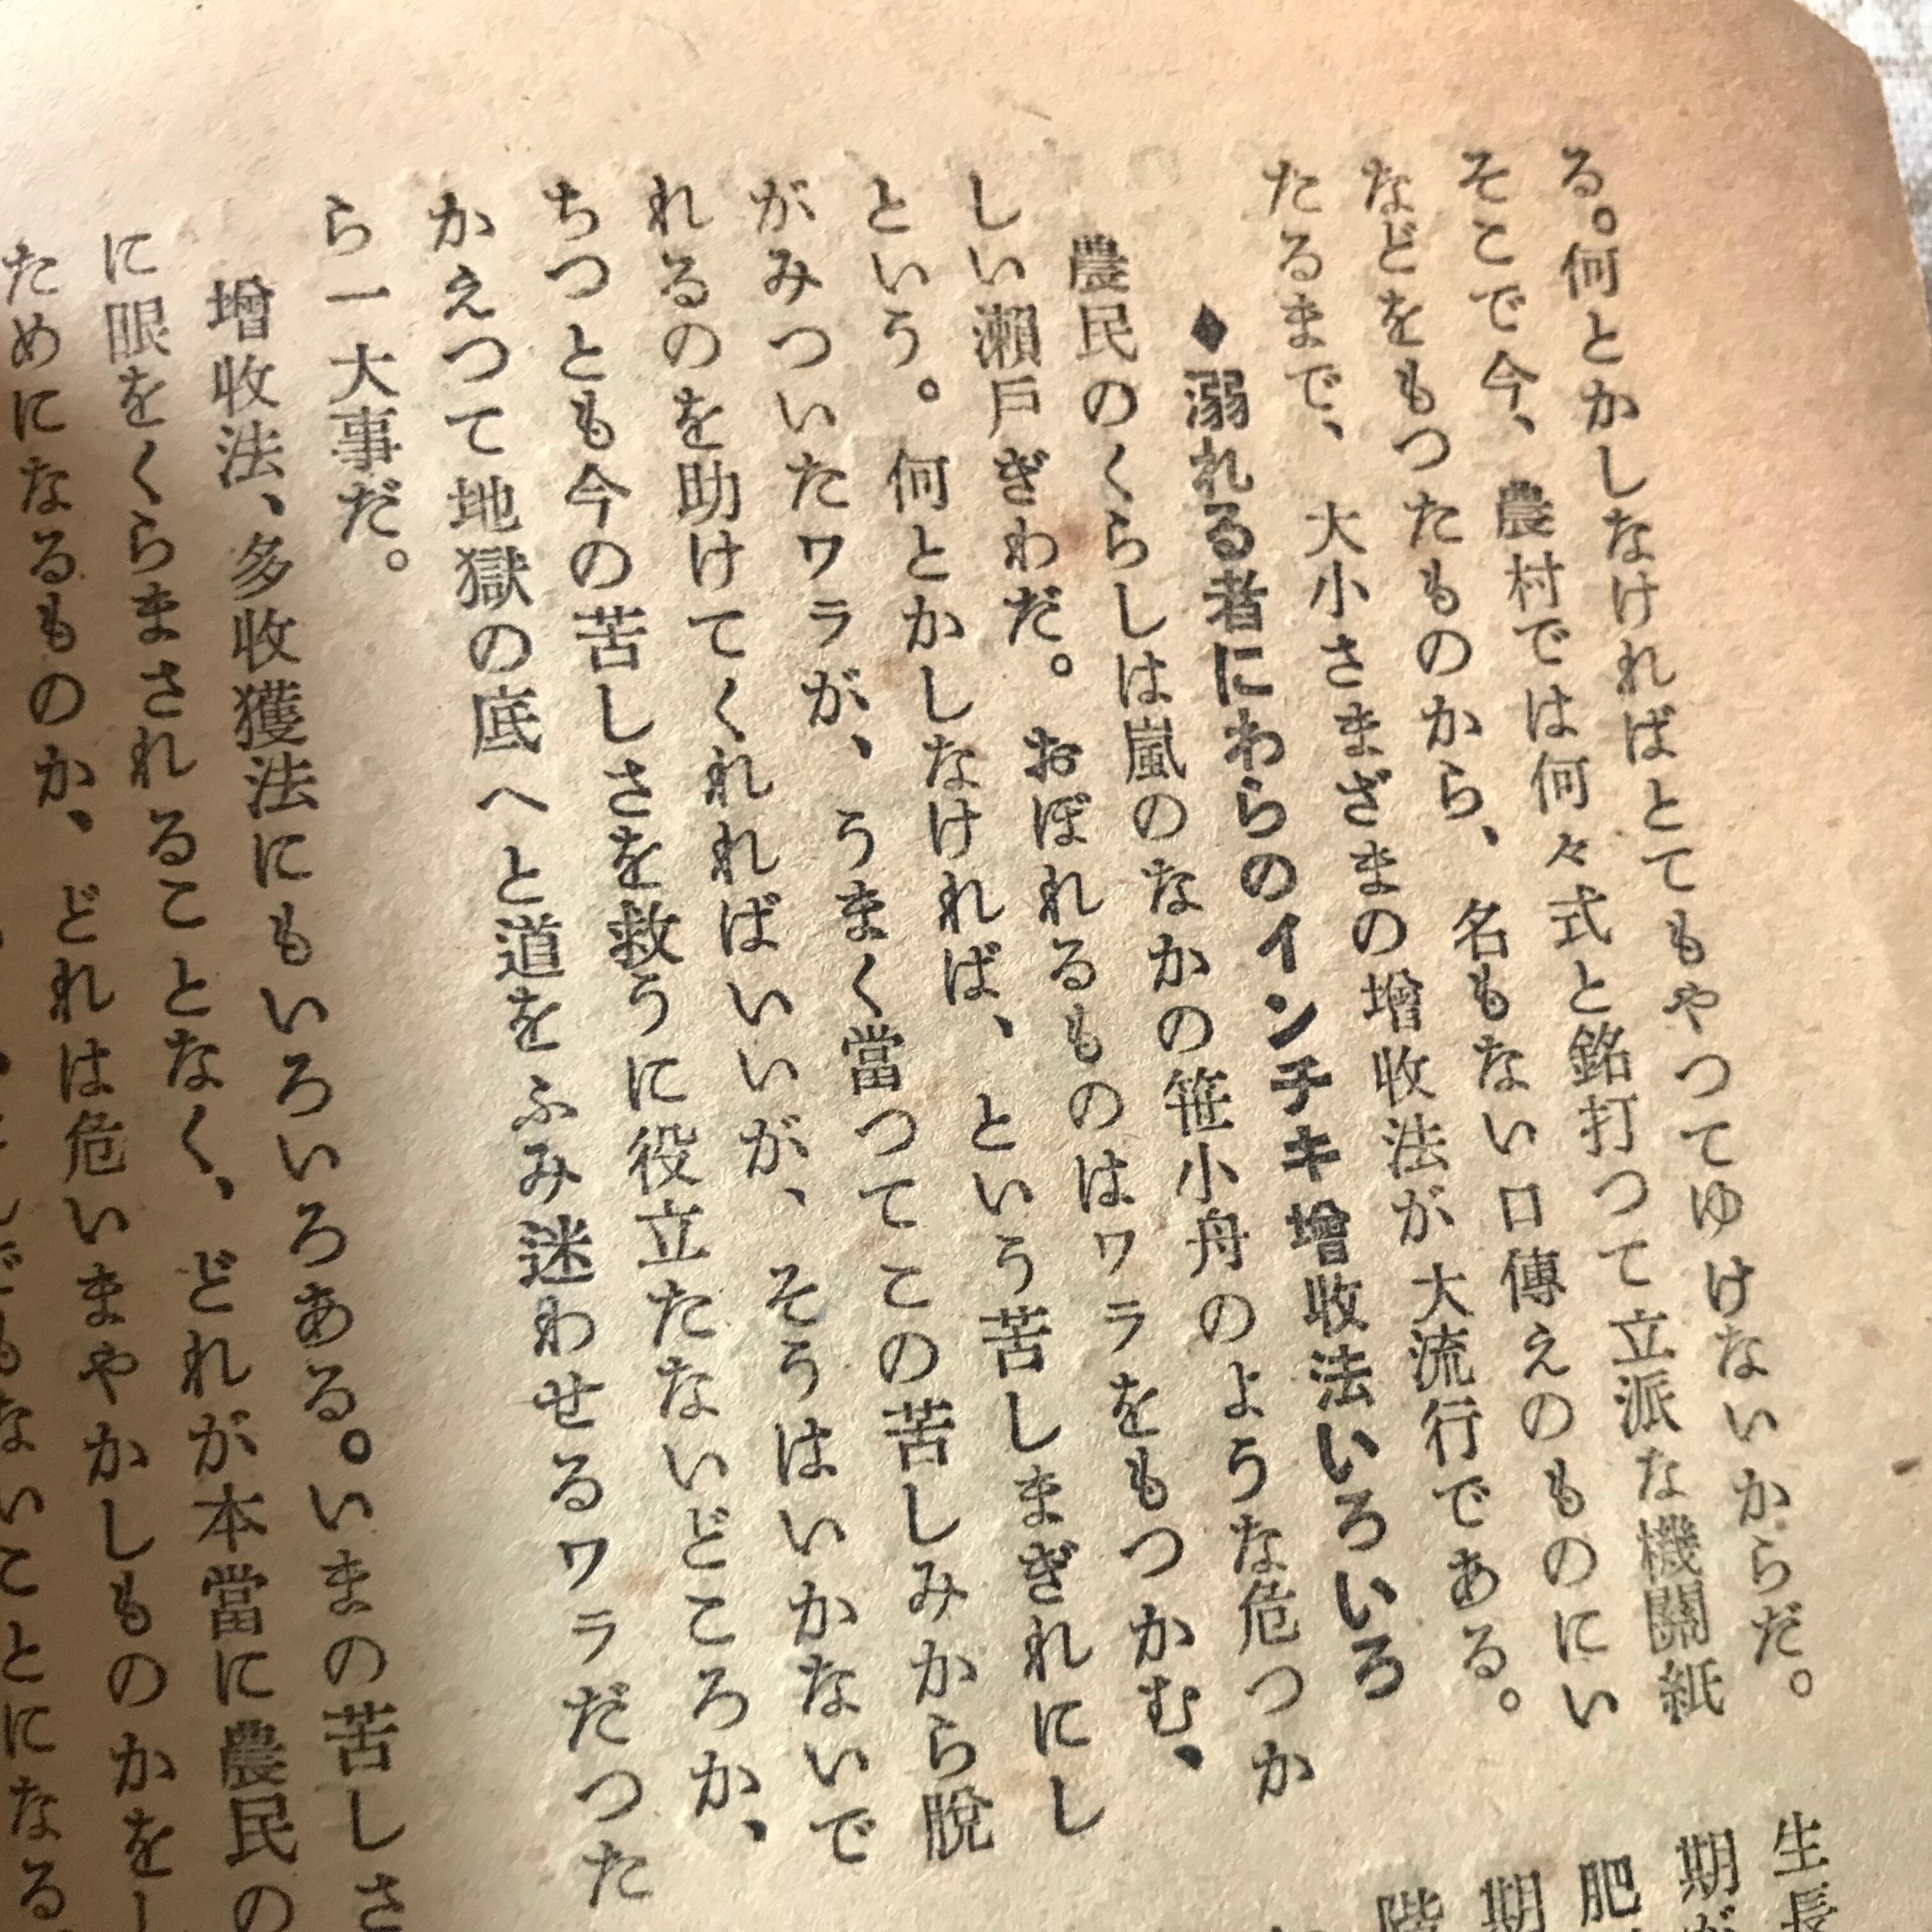 る。何とかしなければとてもやつてゆけないからだ。
そこで今、農村では何々式と銘打つて立派な機關紙
などをもつたものから、名もない口傳えのものにい
たるまで、大小さまざまの增收法が大流行である。
◆溺れる者にわらのインチキ增收法いろいろ
農民のくらしは嵐のなかの笹小舟のような危つか
しい瀬戸ぎわだ。おぼれるものはワラをもつかむ、
という。何とかしなければ、という苦しまぎれにし
がみついたワラが、うまく當つてこの苦しみから脫
れるのを助けてくれればいいが、そうはいかないで
ちつとも今の苦しさを救うに役立たないどころか、
かえつて地獄の底へと道をふみ迷わせるワラだつた
ら一大事だ。
增收法、多收獲法にもいろいろある。いまの苦しさ
に眼をくらまされることなく、どれが本當に農民の
ためになるものか、どれは危いまやかしものかを
もないことになる
生長
期が
肥
期
階